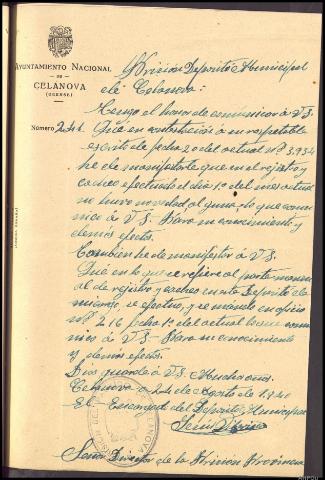 AYUNTAMIENTO NACIONAL
DE
CELANOVA
(ORENSE)
Número 241.
Prision Deposito Municipal
de Celanova:
Tengo el honor de comunicar á V.S.
Que en contestación á su respetable
escrito de fecha 20 del actual nº 3934
he de manifestarle que en el registro y
cacheo efectuado el dia 1º del mes actual
no hubo novedad alguna lo que comu-
nico á V.S. Para su conocimiento y
demás efectos.
Tambien he de manifestar á V.S.
Que en lo que se refiere al parte mensual
de registro y cacheo en este Deposito de
mi cargo, se efectuo, y se mandó en oficio
nº 216 fecha 1º del actual lo que comu-
nico á V.S. Para su conocimiento
y demas efectos.
Dios guarde á V.S. Muchos años.
Celanova á 24 de Agosto de 1940
El Encargado del Deposito Municipal
Señor Director de la Prision Provincial